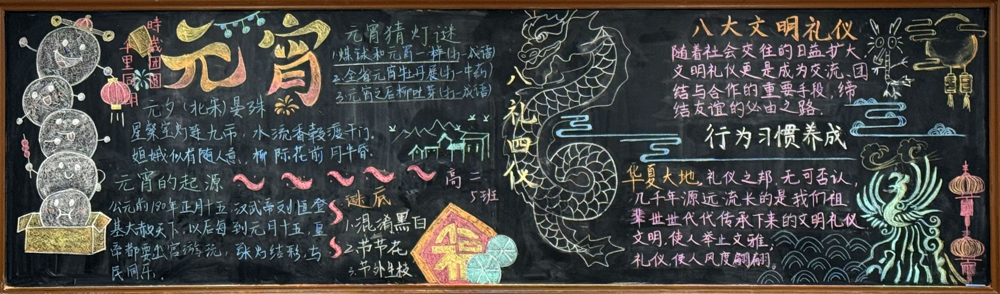 時歲团圆
华里同
元宵
元夕（北宋）晏殊
星繁
水流香
似有随人意，柳际花前月半昏
元宵的起源
公元前180年正月十五,汉武帝刘恒登
基大赦天下,以后每到元月十五,夏
帝都要出宫游玩，
民同乐.
元宵猜灯谜
1.煤球和元宵一样(打一成语)
2.全省元宵牡丹展(打一中药)
3.元宵之后柳吐芽(打一成语)
高二
5班
谜底
1.混淆黑白
2.节节花
3.节外生枝
八礼四仪
八大文明礼仪
随着社会交往的日益扩大
文明礼仪更是成为交流,团
结与合作的重要手段,缔
结友谊的必由之路.
行为习惯养成
华夏大地,礼仪之邦,无可否认,
几千年源远流长的是我们祖
辈世世代代传承下来的文明礼仪
文明,使人举止文雅;
礼仪,使人风度翩翩.